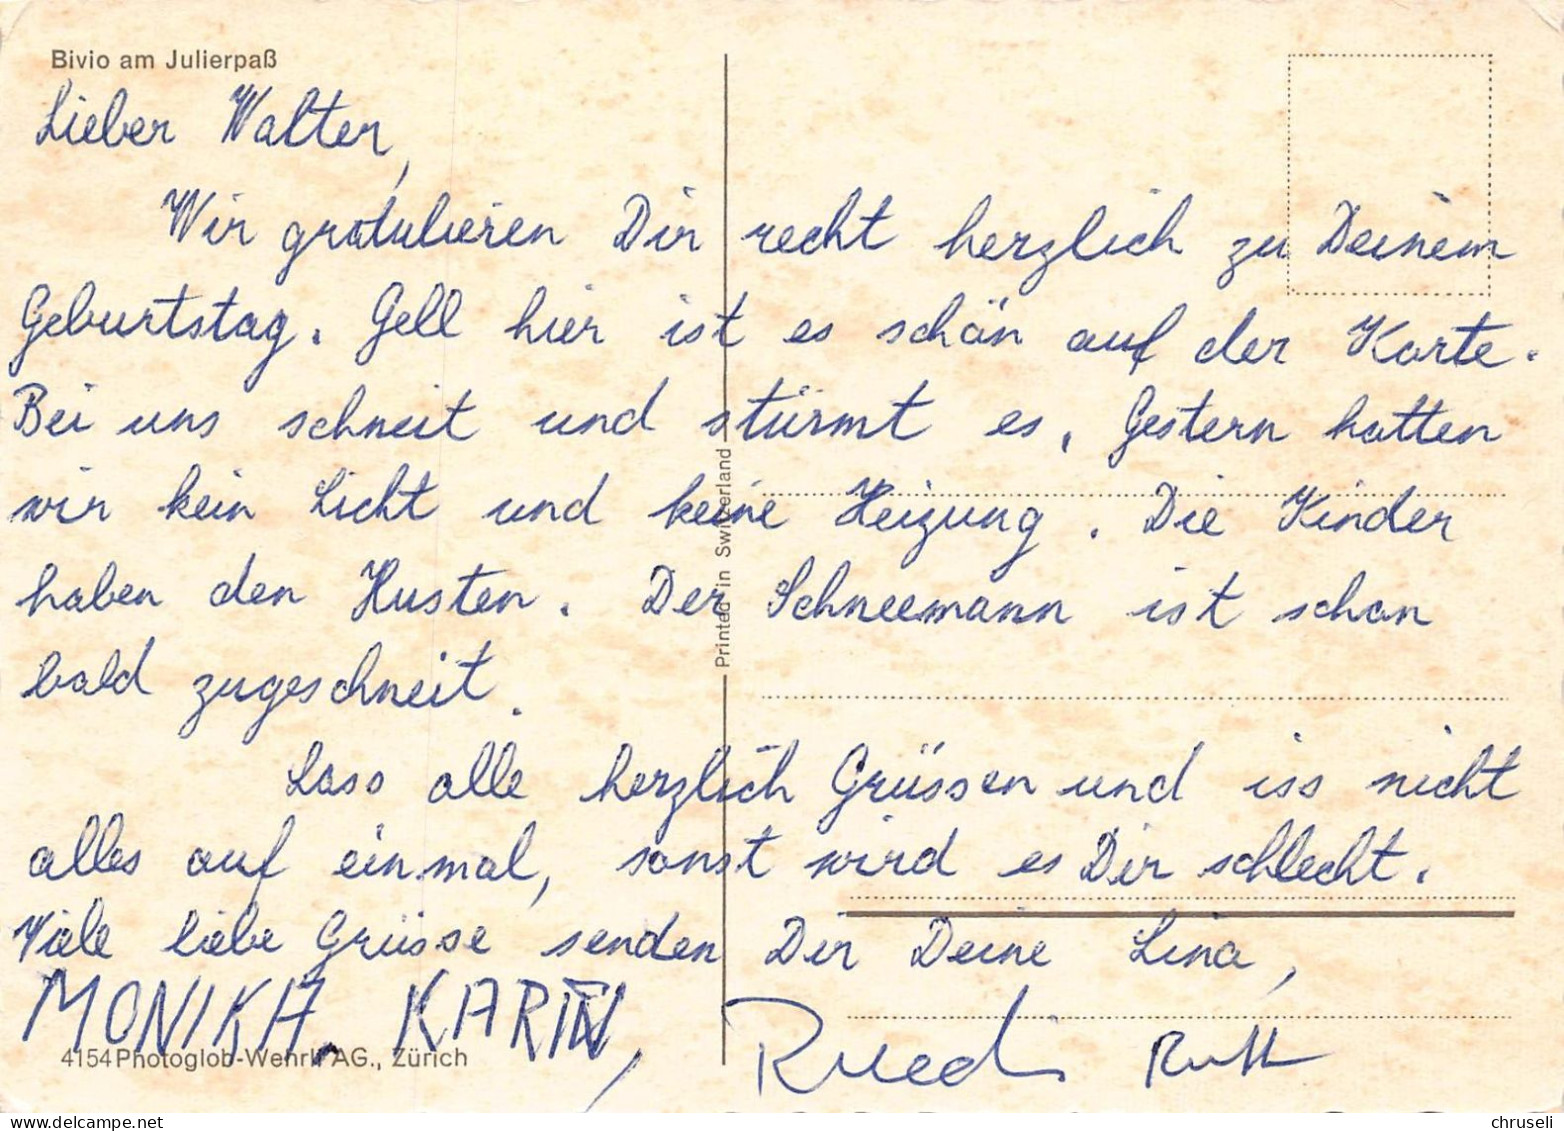 Bivio am Julierpaß
Lieber Walter,
Wir gratulieren Dir recht herzlich zu Deinem
Geburtstag. Gell hier ist es schön auf der Karte.
Bei uns schneit und stürmt es. Gestern hatten
wir kein Licht und keine Heizung. Die Kinder
haben den Husten. Der Schneemann ist schon
bald zugeschneit.
Lass alle herzlich Grüssen und iss nicht
alles auf einmal, sonst wird es Dir schlecht.
Viele liebe Grüsse senden Dir Deine Lina,
MONIKA. KARIN, Ruedi Ruth
4154 Photoglob-Wehrli AG., Zürich
Printed in Switzerland
chruseli